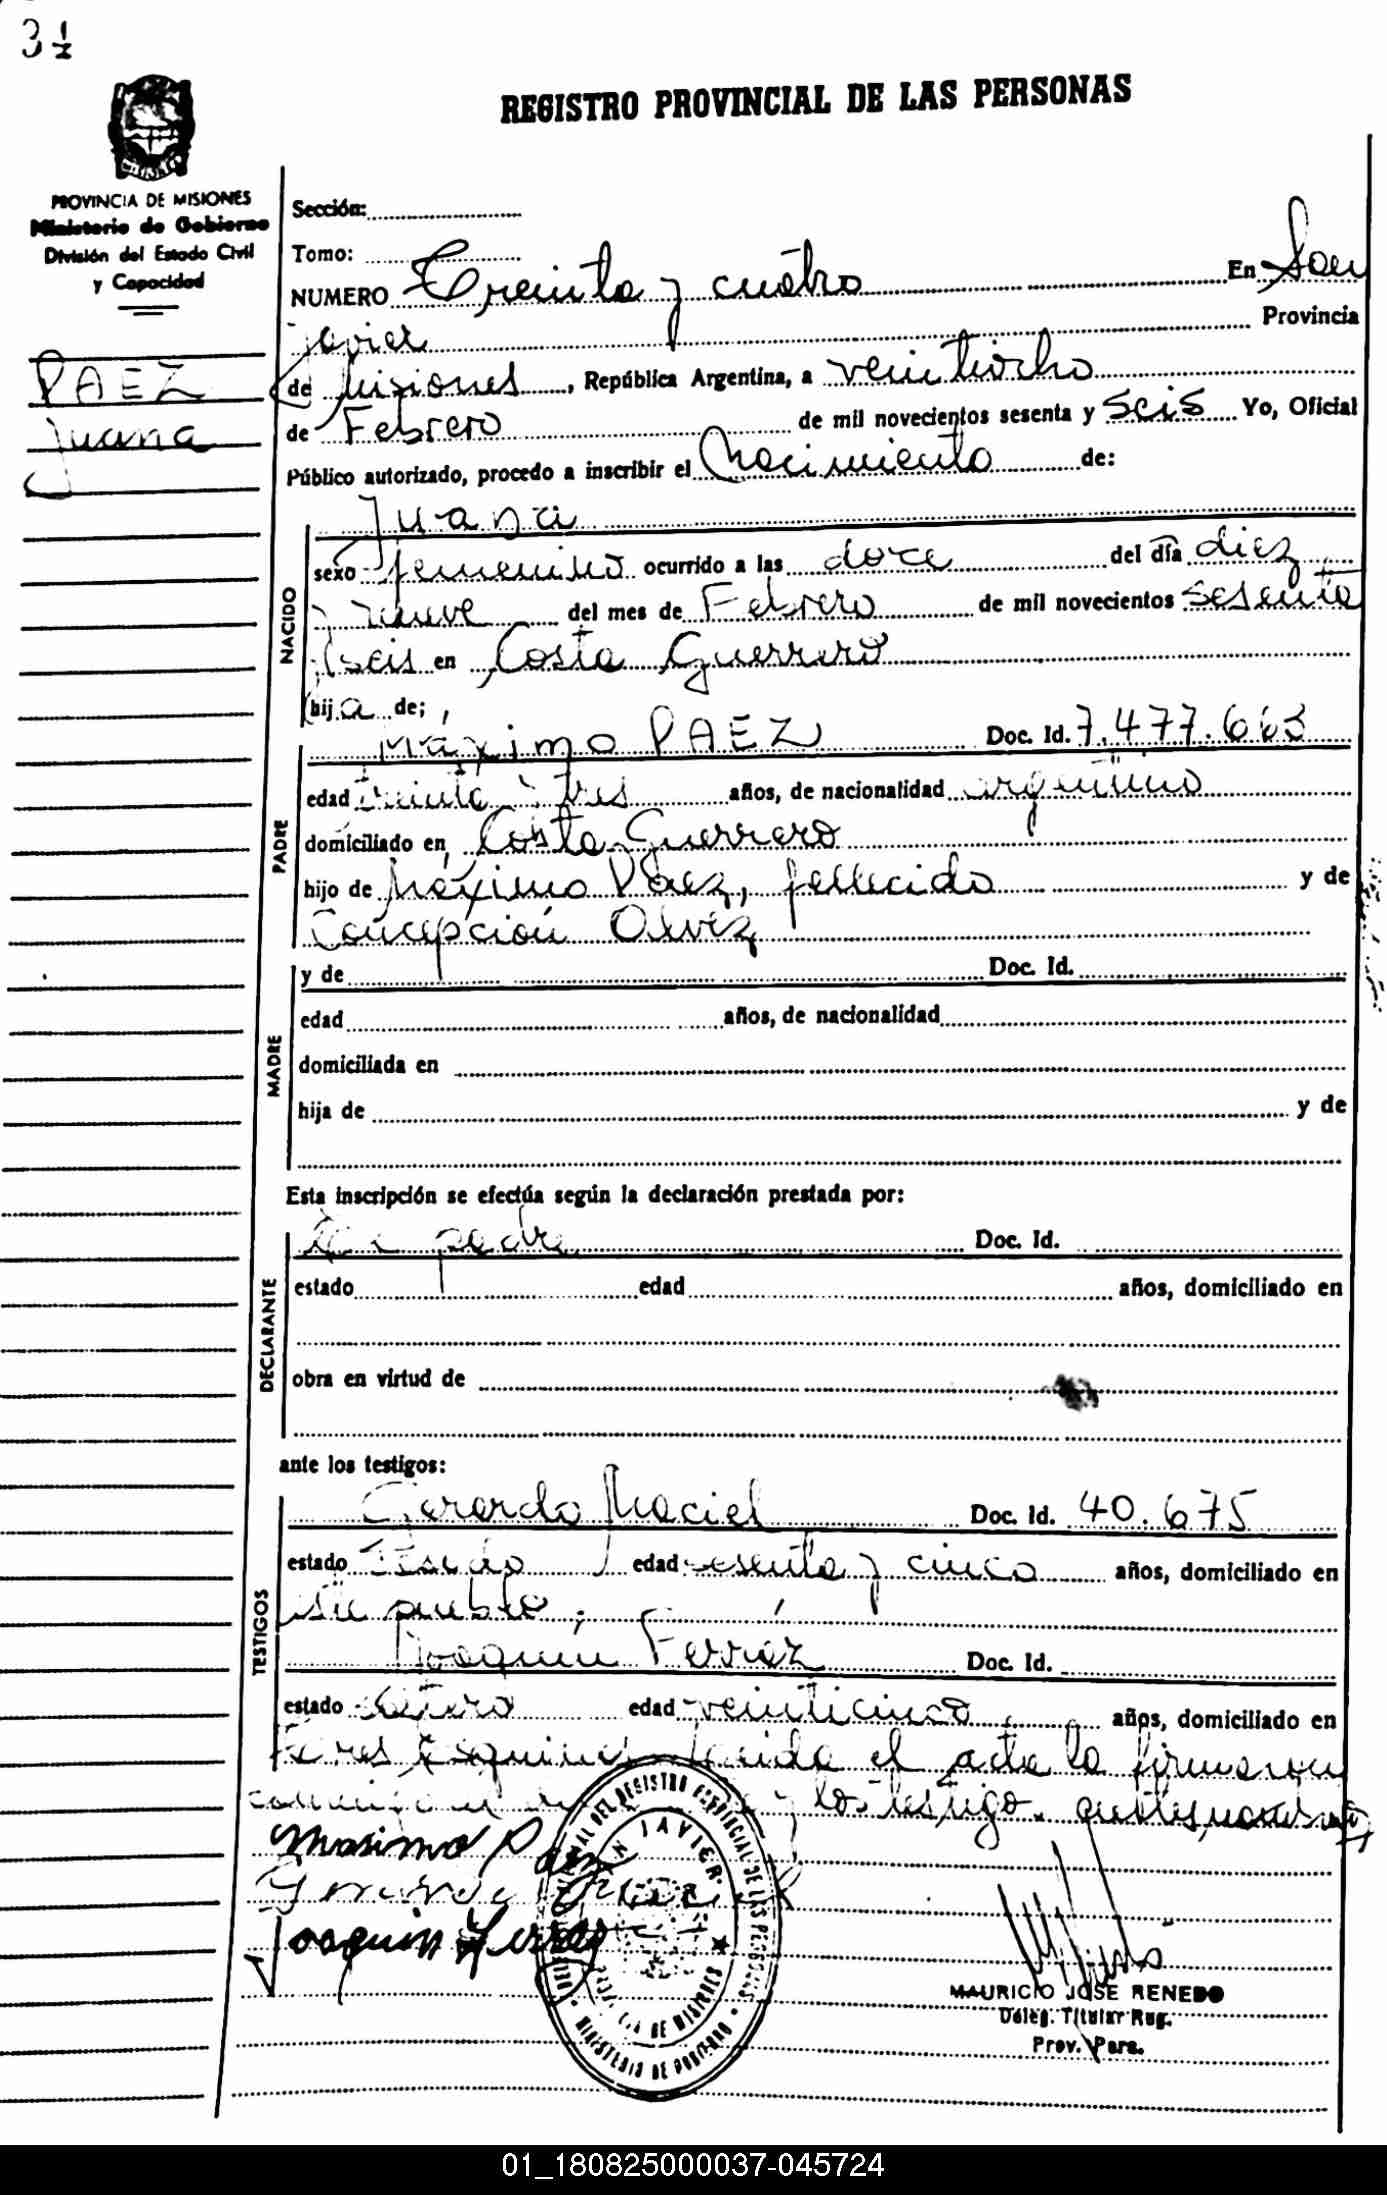 REGISTRO PROVINCIAL DE LAS PERSONAS
PROVINCIA DE MISIONES
Ministerio de Gobierno
División del Estado Civil
y Capacidad
PAEZ
Juana
Sección:
Tomo:
NUMERO Treinta y cuatro En San
Javier Provincia
de Misiones, República Argentina, a veintiocho
de Febrero de mil novecientos sesenta y seis Yo, Oficial
Público autorizado, procedo a inscribir el Nacimiento de:
Juana
NACIDO
sexo femenino ocurrido a las doce del día diez
y nueve del mes de Febrero de mil novecientos sesenta
y seis en Costa Guerrero
hija de;
PADRE
Máximo PAEZ Doc. Id. 7.477.663
edad treinta y tres años, de nacionalidad argentino
domiciliado en Costa Guerrero
hijo de Máximo Páez, fallecido y de
Concepción Olvez
MADRE
y de Doc. Id.
edad años, de nacionalidad
domiciliada en
hija de y de
Esta inscripción se efectúa según la declaración prestada por:
DECLARANTE
padre Doc. Id.
estado edad años, domiciliado en
obra en virtud de
ante los testigos:
TESTIGOS
Gerardo Maciel Doc. Id. 40.675
estado casado edad sesenta y cinco años, domiciliado en
este pueblo,
Joaquín Ferraz Doc. Id.
estado soltero edad veinticinco años, domiciliado en
Tres Esquinas leida el acta la firmaron
y los testigos
Masimo Paez
Joaquin Ferraz
REGISTRO PROVINCIAL DE LAS PERSONAS
SAN JAVIER
MISIONES
MINISTERIO DE GOBIERNO
MAURICIO JOSE RENEDO
Deleg. Titular Reg.
Prov. Pers.
01_180825000037-045724